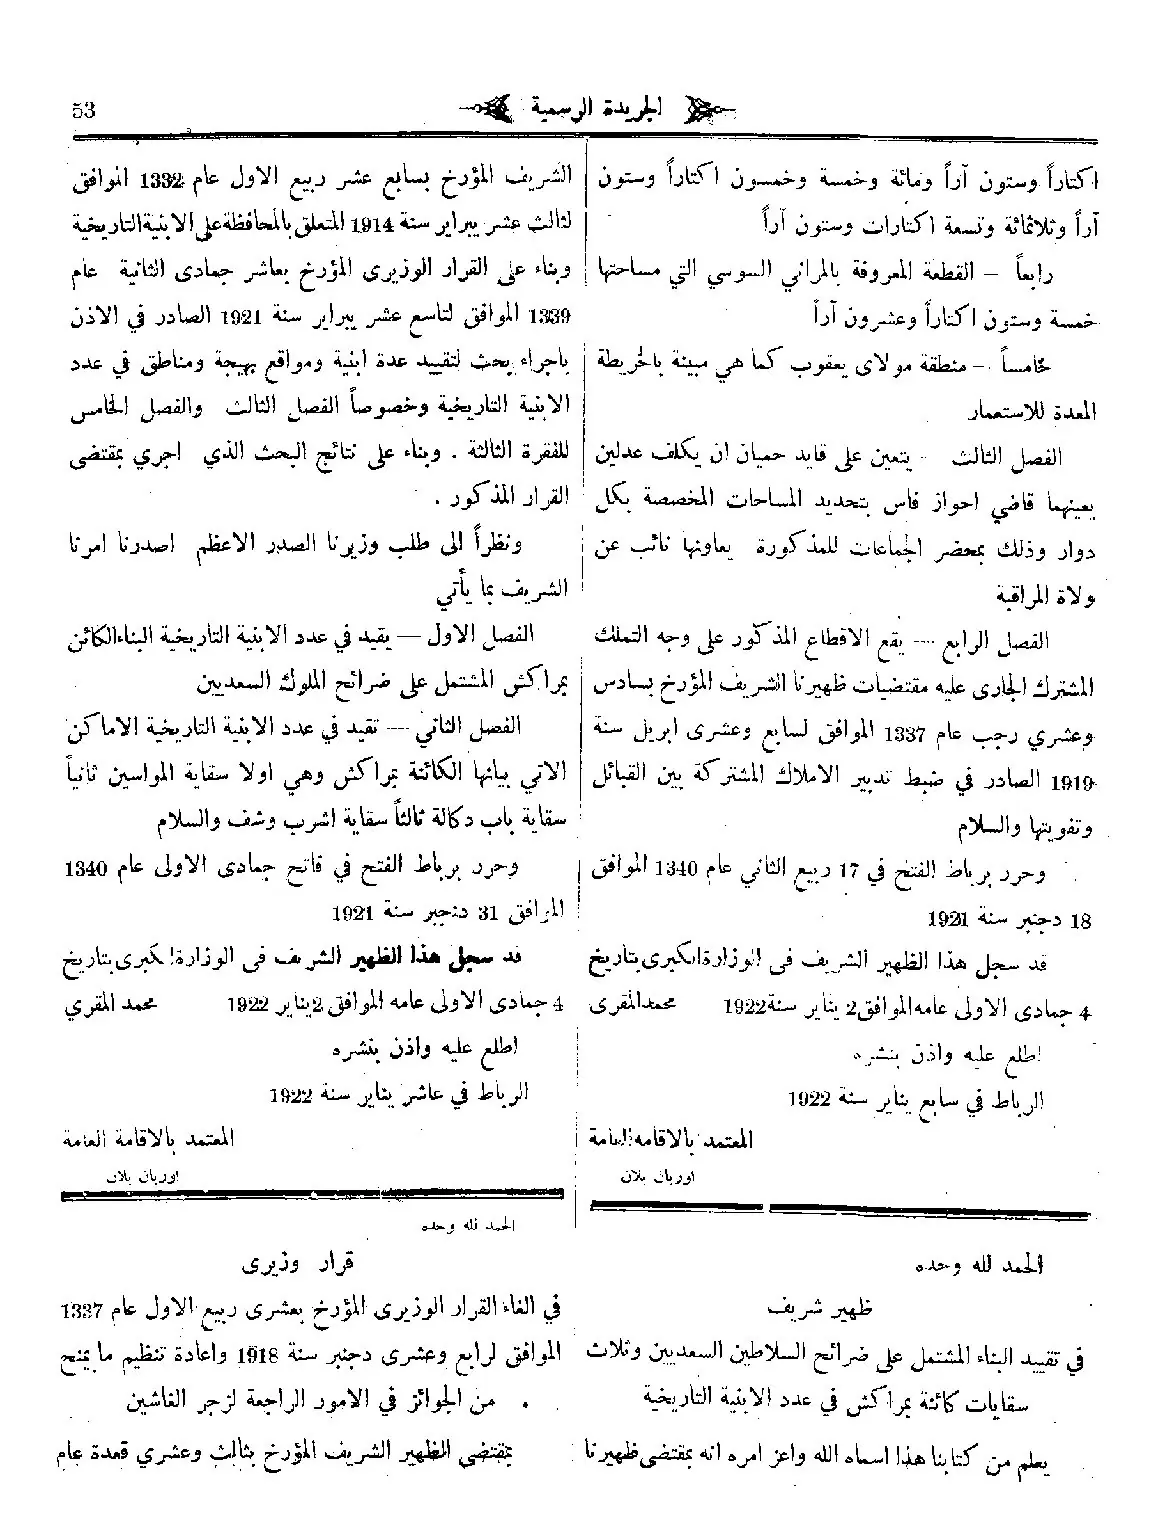 53
الجريدة الرسمية
اكتاراً وستون آراً ومائة وخمسة وخمسون اكتاراً وستون
آراً وثلاثمائة وتسعة اكتارات وستون آراً
رابعاً – القطعة المعروفة بالمراني السوسي التي مساحتها
خمسة وستون اكتاراً وعشرون آراً
خامساً – منطقة مولاى يعقوب كما هي مبينة بالخريطة
المعدة للاستعمار
الفصل الثالث – يتعين على قايد حميان ان يكلف عدلين
يعينهما قاضي احواز فاس بتحديد المساحات المخصصة بكل
دوار وذلك بمحضر الجماعات للمذكورة يعاونها نائب عن
ولاة المراقبة
الفصل الرابع — يقع الاقطاع المذكور على وجه التملك
المشترك الجارى عليه مقتضيات ظهيرنا الشريف المؤرخ بسادس
وعشري رجب عام 1337 الموافق لسابع وعشرى ابريل سنة
1919 الصادر في ضبط تدبير الاملاك المشتركة بين القبائل
وتفويتها والسلام
وحرر برباط الفتح في 17 ربيع الثاني عام 1340 الموافق
18 دجنبر سنة 1921
قد سجل هذا الظهير الشريف فى الوزارة الكبرى بتاريخ
4 جمادى الاولى عامه الموافق 2 يناير سنة 1922 محمد المقرى
اطلع عليه واذن بنشره
الرباط في سابع يناير سنة 1922
المعتمد بالاقامة العامة
اوربان بلان
الحمد لله وحده
ظهير شريف
في تقييد البناء المشتمل على ضرائح السلاطين السعديين وثلاث
سقايات كائنة بمراكش في عدد الابنية التاريخية
يعلم من كتابنا هذا اسماه الله واعز امره انه بمقتضى ظهيرنا
الشريف المؤرخ بسابع عشر ربيع الاول عام 1332 الموافق
لثالث عشر يبراير سنة 1914 المتعلق بالمحافظة على الابنية التاريخية
وبناء على القرار الوزيرى المؤرخ بعاشر جمادى الثانية عام
1339 الموافق لتاسع عشر يبراير سنة 1921 الصادر في الاذن
باجراء بحث لتقييد عدة ابنية ومواقع بهيجة ومناطق في عدد
الابنية التاريخية وخصوصاً الفصل الثالث والفصل الخامس
للفقرة الثالثة . وبناء على نتائج البحث الذي اجري بمقتضى
القرار المذكور .
ونظراً الى طلب وزيرنا الصدر الاعظم اصدرنا امرنا
الشريف بما يأتي
الفصل الاول — يقيد في عدد الابنية التاريخية البناء الكائن
بمراكش المشتمل على ضرائح الملوك السعديين
الفصل الثاني — تقيد في عدد الابنية التاريخية الاماكن
الاتي بيانها الكائنة بمراكش وهي اولا سقاية المواسين ثانياً
سقاية باب دكالة ثالثاً سقاية اشرب وشف والسلام
وحرر برباط الفتح في فاتح جمادى الاولى عام 1340
الموافق 31 دنجبر سنة 1921
قد سجل هذا الظهير الشريف فى الوزارة الكبرى بتاريخ
4 جمادى الاولى عامه الموافق 2 يناير 1922 محمد المقري
اطلع عليه واذن بنشره
الرباط في عاشر يناير سنة 1922
المعتمد بالاقامة العامة
اوربان بلان
الحمد لله وحده
قرار وزيرى
في الغاء القرار الوزيرى المؤرخ بعشرى ربيع الاول عام 1337
الموافق لرابع وعشرى دجنبر سنة 1918 واعادة تنظيم ما يمنح
من الجوائز في الامور الراجعة لزجر الغاشين .
بمقتضى الظهير الشريف المؤرخ بثالث وعشري قعدة عام